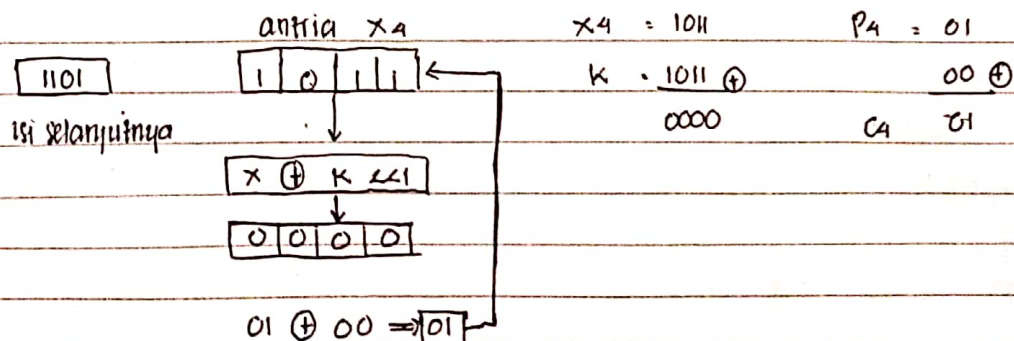 antria X4 X4 = 1011 P4 = 01
1101 1 0 1 1 K = 1011 ⊕ 00 ⊕
isi selanjutnya 0000 C4 01
X ⊕ K <<1
0 0 0 0
01 ⊕ 00 ⇒ 01